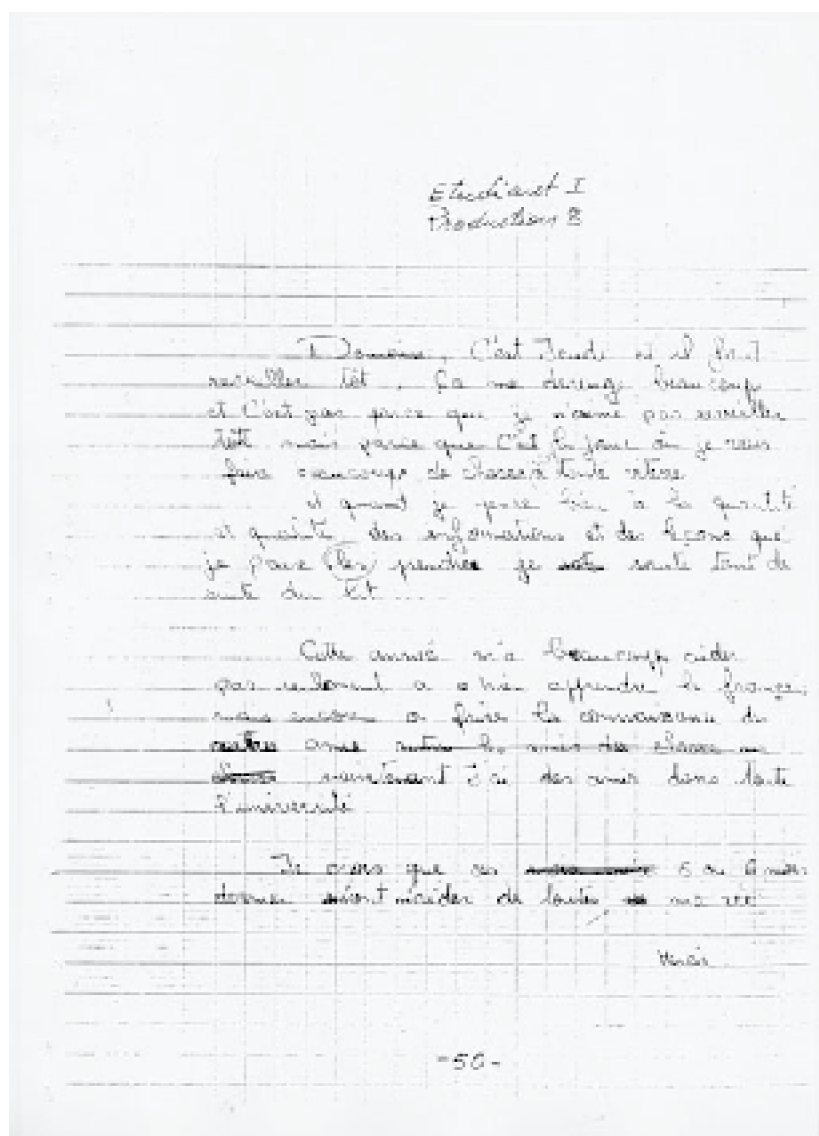 Etudiant I
Production 2
Demain, C'est Jeudi et il faut
reveiller tôt, Ça me derenge beaucoup
et C'est pas parce que je n'aime pas reveiller
tôt mais parce que C'est le jour où je vais
faire beaucoup de choses à toute vitese
et quant je pense bien à la quantité
et quainté des informations et des leçons que
je paux les prendre je saute tout de
suite du lit
Cette année m'a beaucoup aider
pas seulement a bien apprendre le françe,
mais encore a faire la connaissance de
autres amis
maintenant J'ai des amis dans toute
l'université
Je crois que ces 6 ou 6 mois
dernier m'aider de toutes ma vie
Merci
-50-